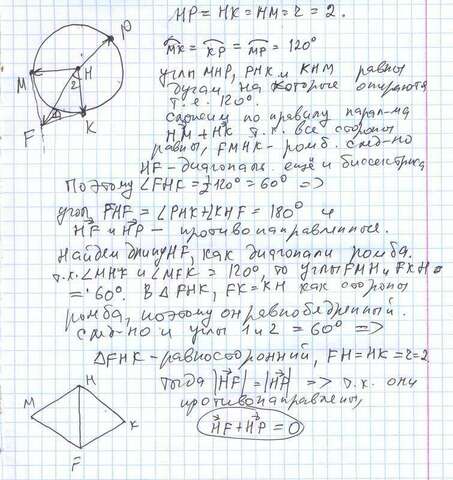 HP = HK = HM = r = 2.
MK = KP = MP = 120°
углы MHP, PHK и KHM равны
дугам на которые опираются
т.е. 120°.
Сложим по правилу парал-ма
HM + HK т.к. все стороны
равны, FMHK - ромб. след-но
HF - диагональ ещё и биссектриса
Поэтому ∠FHK = 1/2 120° = 60° =>
угол PHF = ∠PHK + ∠KHF = 180° и
HF и HP - противонаправленные.
Найдем длину HF, как диагонали ромба.
т.к. ∠MHK и ∠MFK = 120°, то углы FMH и FKH =
= 60°. В Δ FHK, FK = KH как стороны
ромба, поэтому он равнобедренный.
След-но и углы 1 и 2 = 60° =>
Δ FHK - равносторонний, FH = HK = r = 2
тогда |HF| = |HP| => т.к. они
противонаправлены,
HF + HP = 0
P
M
H
2
1
F
K
H
M
K
F